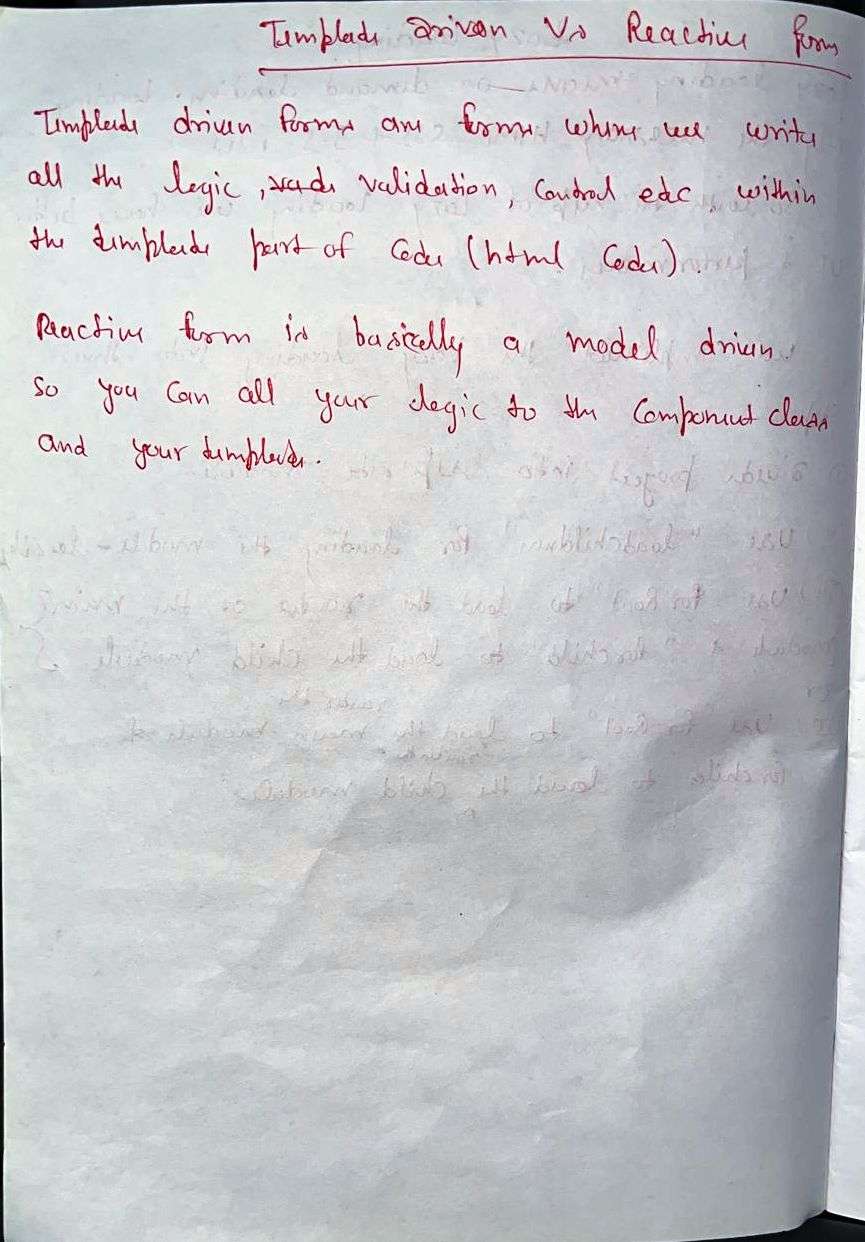 Template Driven Vs Reactive form
Template driven forms are forms where we write
all the logic, validation, Control etc, within
the template part of Code (html Code).
Reactive form is basically a model driven.
So you Can all your logic to the Component class
and your template.